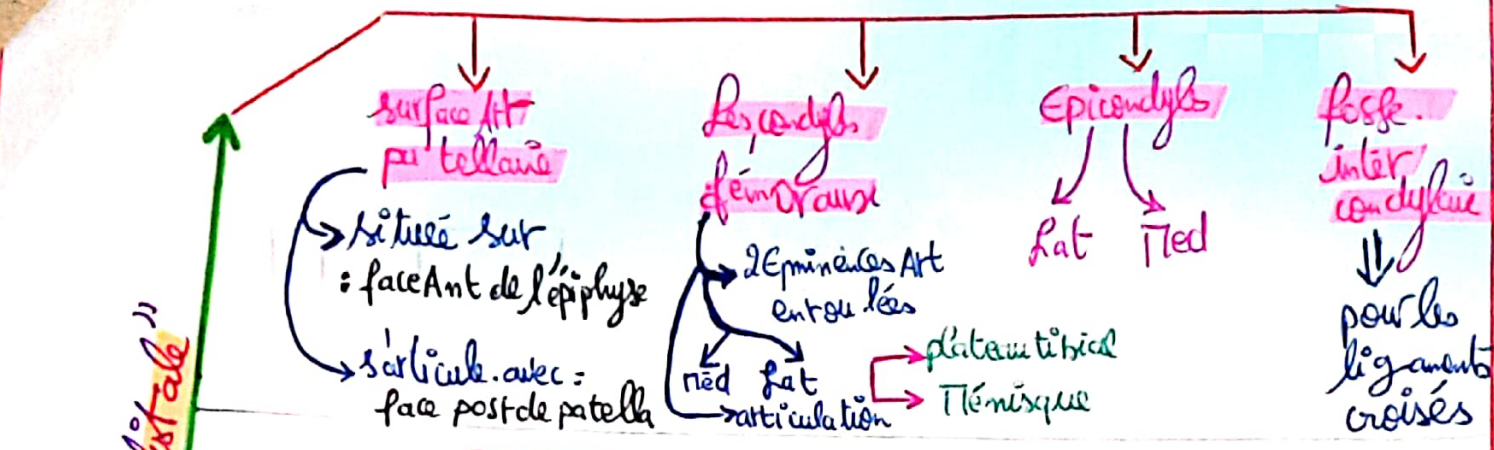 surface Art
patellaire
située sur
: face Ant de l'épiphyse
s'articule avec :
face post de patella
Les condyles
fémoraux
2 Eminences Art
enroulées
Med Lat
articulation
plateau tibial
Ménisque
Epicondyles
Lat Med
fosse
inter
condylaire
pour les
ligaments
croisés